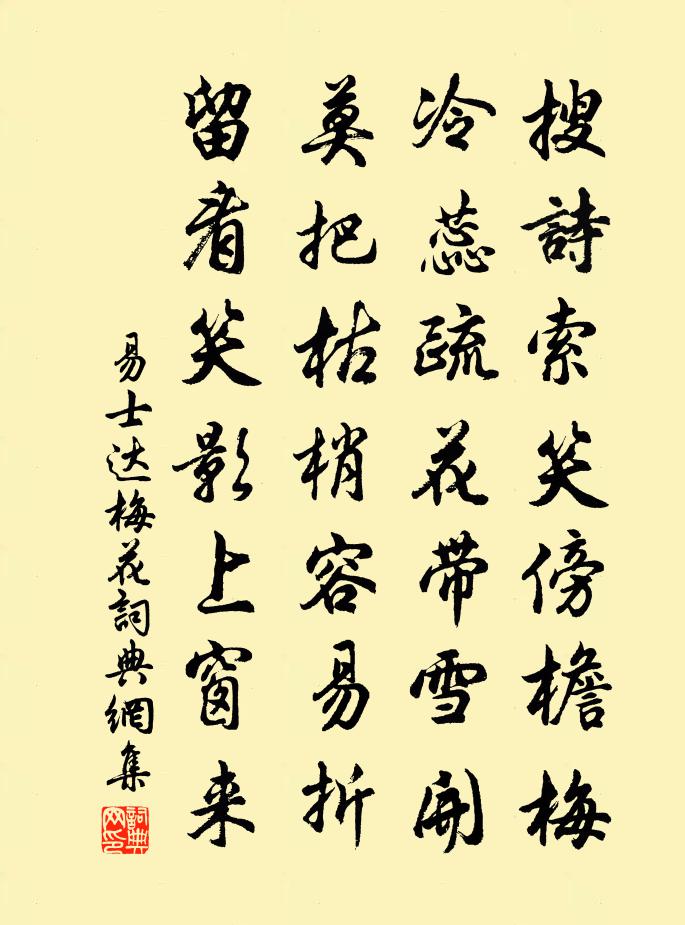 搜詩索笑傍檐梅
冷蕊疏花带雪開
莫把枯梢容易折
留看笑影上窗来
易士达梅花詞典網集
詞典网印